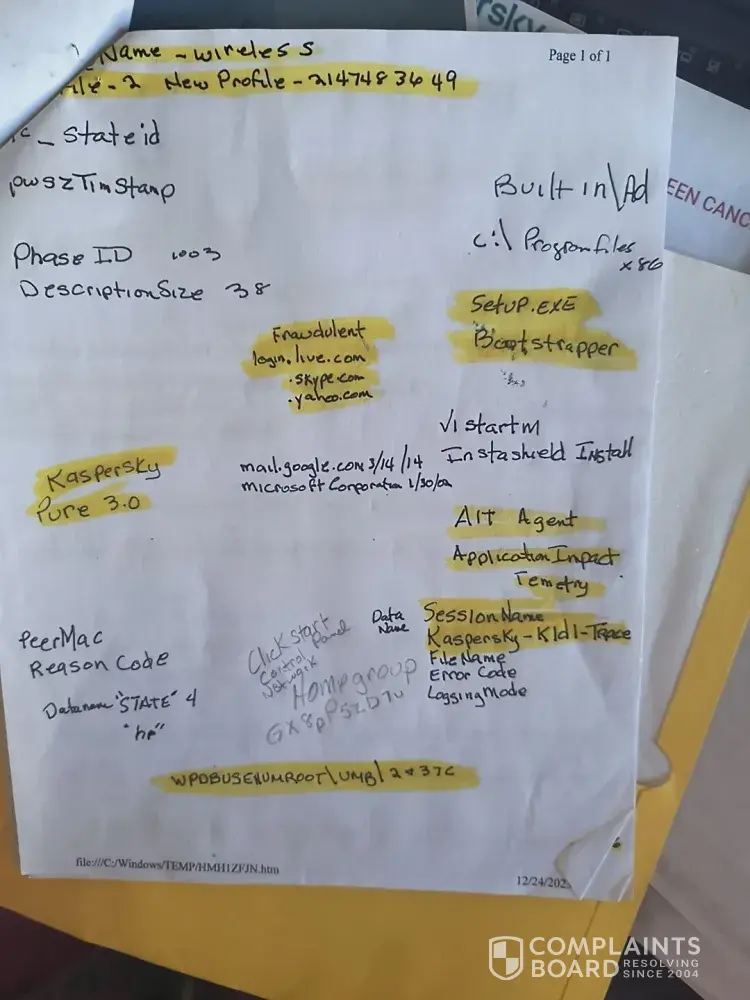 rsky
Name - wireless
Page 1 of 1
ile - 2 New Profile - 2147483649
c_stateid
pwszTimStamp
Built in\Ad
EEN CANC
Phase ID 1003
c:\ Program files
x86
DescriptionSize 38
Setup.EXE
Bootstrapper
Fraudulent
login.live.com
.skype.com
.yahoo.com
V1startM
mail.google.com 3/14/14
Instashield INStall
microsoft Corporation 1/30/02
Kaspersky
Pure 3.0
AIT Agent
Application Impact
Temetry
Data
Name
SessionName
Kaspersky-Kldl-Trace
FileName
Error Code
LoggingMode
PeerMac
Reason Code
Click Start
Control Panel
Network
Homegroup
Dataname "STATE" 4
"hp"
WPDBUSENUMROOT\UMB\2&37C
file:///C:/Windows/TEMP/HMH1ZFJN.htm
12/24/202
COMPLAINTS
BOARD RESOLVING
SINCE 2004